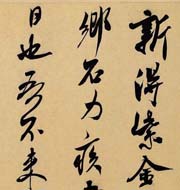 新得紫金
鄉石力疾
日也吾不来